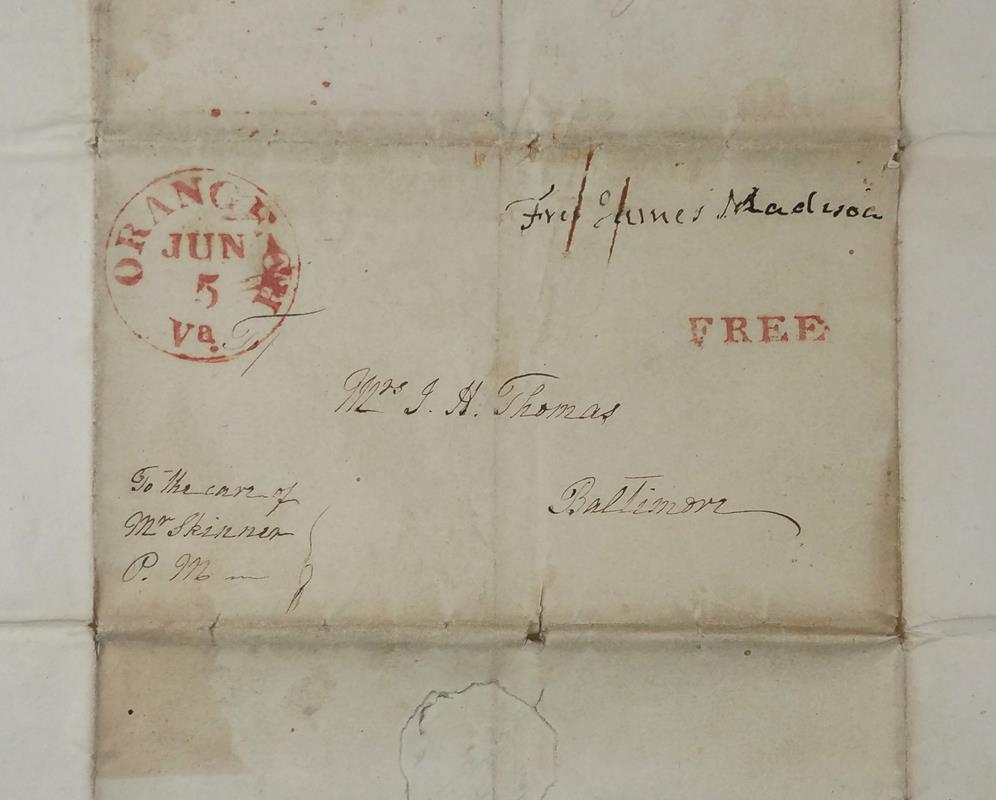 ORANGE
JUN
5
Va.
Free James Madison
FREE
Mrs J. H. Thomas
Baltimore
To the care of
Mr Skinner
P. M